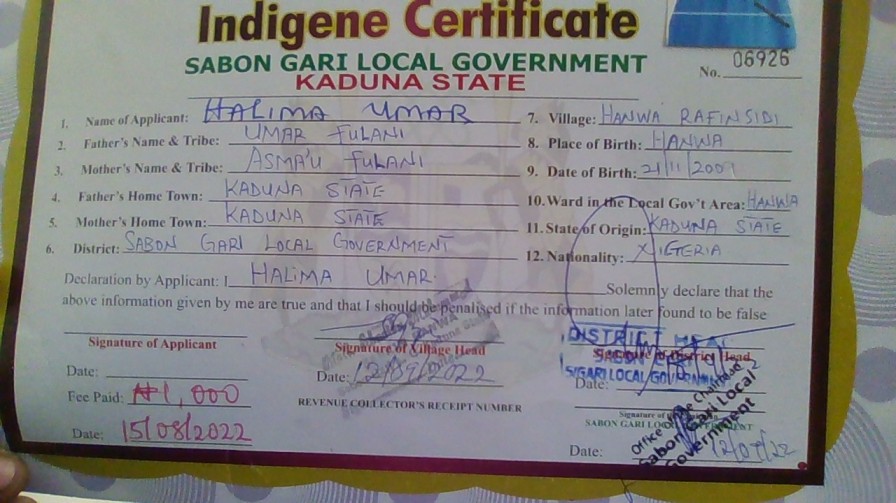 Indigene Certificate
SABON GARI LOCAL GOVERNMENT
KADUNA STATE
No. 06926
1. Name of Applicant: HALIMA UMAR
2. Father's Name & Tribe: UMAR FULANI
3. Mother's Name & Tribe: ASMA'U FULANI
4. Father's Home Town: KADUNA STATE
5. Mother's Home Town: KADUNA STATE
6. District: SABON GARI LOCAL GOVERNMENT
7. Village: HANWA RAFINSIDI
8. Place of Birth: HANWA
9. Date of Birth: 21/11/2001
10. Ward in the Local Gov't Area: HANWA
11. State of Origin: KADUNA STATE
12. Nationality: NIGERIA
Declaration by Applicant: I HALIMA UMAR Solemnly declare that the
above information given by me are true and that I should be penalised if the information later found to be false
Signature of Applicant
Date:
Fee Paid: ₦1,000
Date: 15/08/2022
HANWA
Signature of Village Head
Date: 12/09/2022
REVENUE COLLECTOR'S RECEIPT NUMBER
DISTRICT HEAD
SABON GARI
S/GARI LOCAL GOVERNMENT
Signature of District Head
Date:
Signature of
SABON GARI LOCAL GOVERNMENT
Office of the Chairman
Sabon Gari Local
Government
Date: 12/09/22